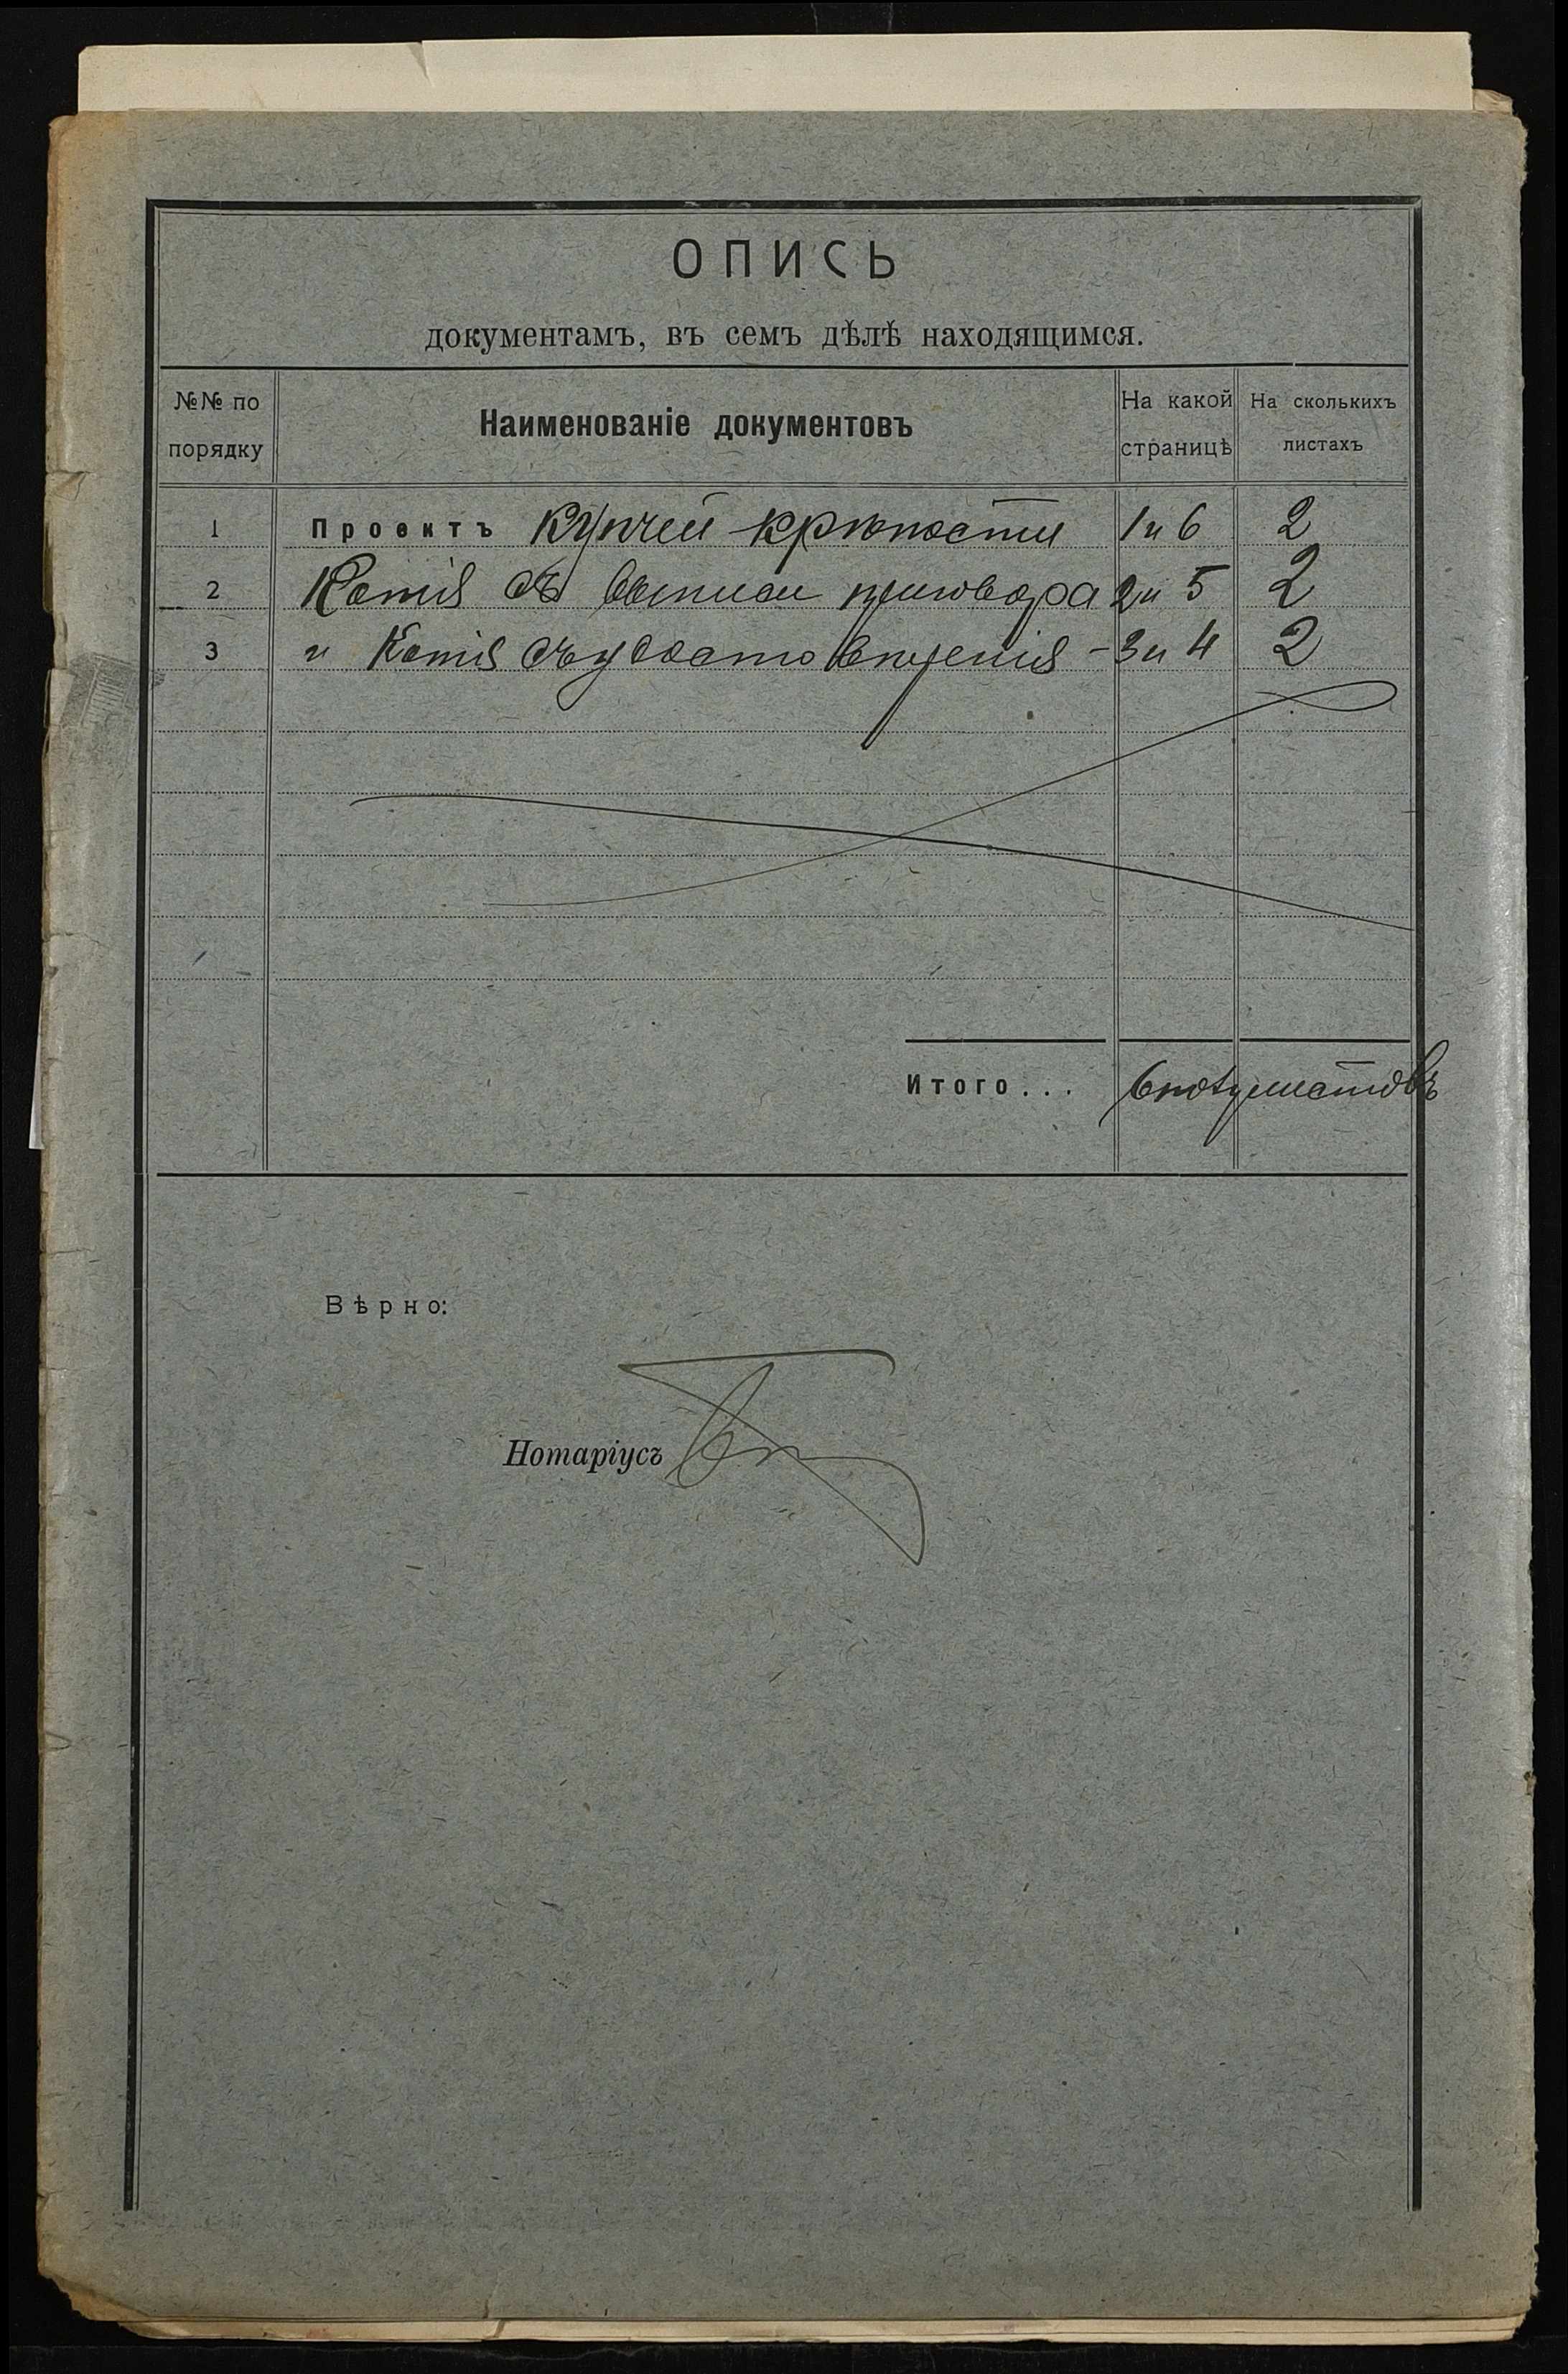 ОПИСЬ
документамъ, въ семъ дѣлѣ находящимся.
№№ по порядку
Наименованіе документовъ
На какой страницѣ
На сколькихъ листахъ
1 Проектъ купчей крѣпости 1 и 6 2
2 Копія съ выписи приговора 2 и 5 2
3 и Копія съ удостовѣренія - 3 и 4 2
Итого... 6 полулистовъ
Вѣрно:
Нотаріусъ